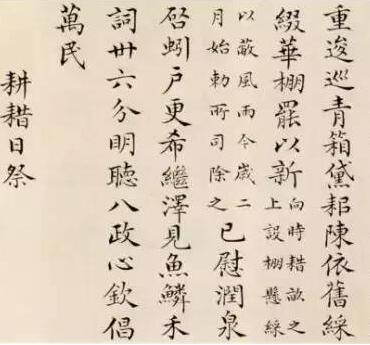 重逡巡青箱黛耜陳依舊綵
綴華棚罷以新向時耤畝之上設棚懸綵
以蔽風雨今歲二月始勅所司除之已慰潤泉
启蚓戶更希繼澤見魚鱗禾
詞卅六分明聽八政心欽倡
萬民
耕耤日祭